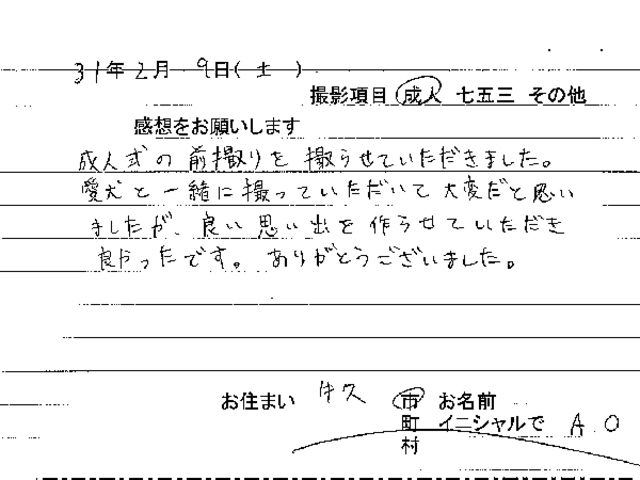 31年2月9日(土)
撮影項目 成人 七五三 その他
感想をお願いします
成人式の前撮りを撮らせていただきました。
愛犬と一緒に撮っていただいて大変だと思い
ましたが、良い思い出を作らせていただき
良かったです。ありがとうございました。
お住まい 牛久 市 お名前
町 イニシャルで A.O
村